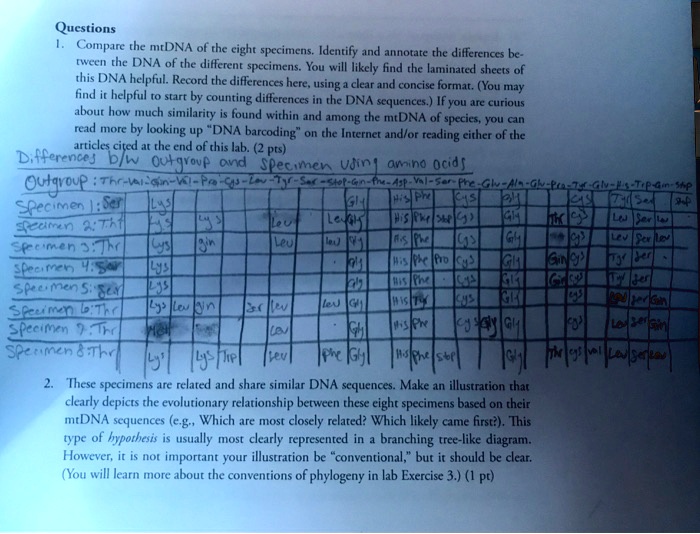 Questions
1. Compare the mtDNA of the eight specimens. Identify and annotate the differences be-
tween the DNA of the different specimens. You will likely find the laminated sheets of
this DNA helpful. Record the differences here, using a clear and concise format. (You may
find it helpful to start by counting differences in the DNA sequences.) If you are curious
about how much similarity is found within and among the mtDNA of species, you can
read more by looking up "DNA barcoding" on the Internet and/or reading either of the
articles cited at the end of this lab. (2 pts)
Differences b/w Outgroup and Specimen using amino acids
Outgroup: Thr-Val-Gln-Val-Pro-Cys-Leu-Tyr-Ser-Stop-Gln-Phe-Asp-Val-Ser-Phe-Glu-Ala-Glu-Pro-Tyr-Glu-His-Trp-Gln-Stop
Specimen 1: Ser Lys Gly His Phe Cys Gly Cys Tyr Ser Stop
Specimen 2: Thr Lys Lys Leu Leu Gly His Phe Stop Cys Gly Thr Cys Leu Ser Leu
Specimen 3: Thr Lys gin Leu leu Gly His Phe Cys Gly Cys Leu Ser Leu
Specimen 4: Ser Lys Gly His Phe Pro Cys Gly Gin Cys Tyr Ser
Specimen 5: Ser Lys Gly His Phe Cys Gly Gin Cys Tyr Ser
Specimen 6: Thr Lys Leu gin Ser Leu Leu Gly His Tyr Cys Gly Cys Ser Gin
Specimen 7: Thr Leu Gly His Phe Cys Gly Gly Cys Leu Ser Gin
Specimen 8: Thr Lys Lys Trp Leu Phe Gly His Phe Stop Gly Thr Cys Val Leu Ser Leu
2. These specimens are related and share similar DNA sequences. Make an illustration that
clearly depicts the evolutionary relationship between these eight specimens based on their
mtDNA sequences (e.g., Which are most closely related? Which likely came first?). This
type of hypothesis is usually most clearly represented in a branching tree-like diagram.
However, it is not important your illustration be "conventional," but it should be clear.
(You will learn more about the conventions of phylogeny in lab Exercise 3.) (1 pt)